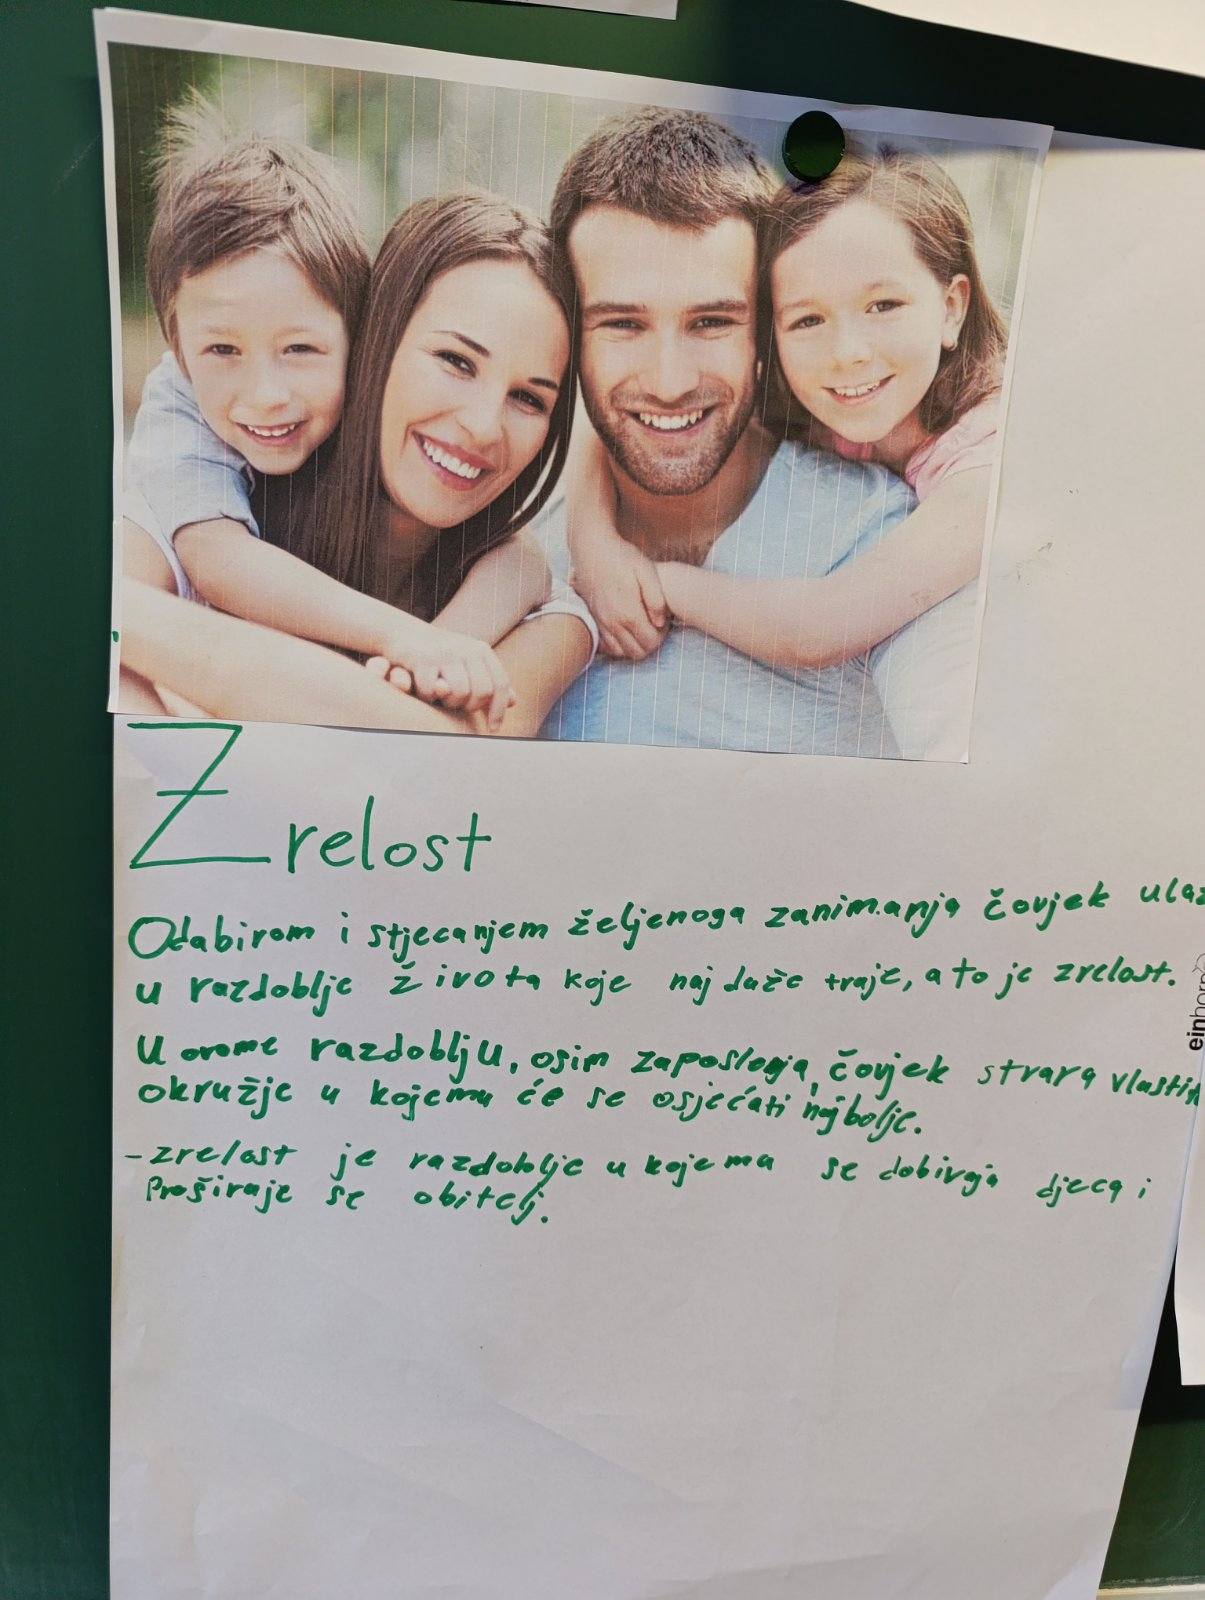 Zrelost
Odabirom i stjecanjem željenoga zanimanja čovjek ulaz
u razdoblje života koje najduže traje, a to je zrelost.
U ovome razdoblju, osim zaposlenja, čovjek stvara vlastit
okružje u kojemu će se osjećati najbolje.
- zrelost je razdoblje u kojema se dobivaja djeca i
Proširaje se obitelj.
einhorn